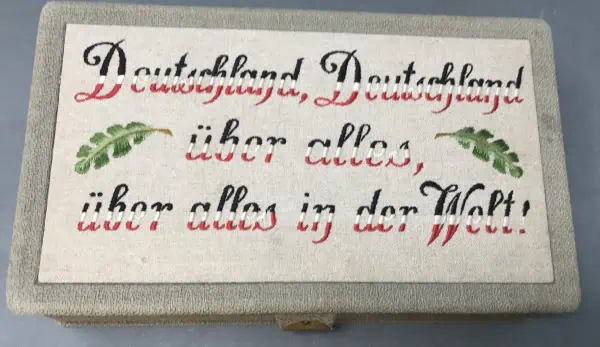 Deutschland, Deutschland
über alles,
über alles in der Welt!